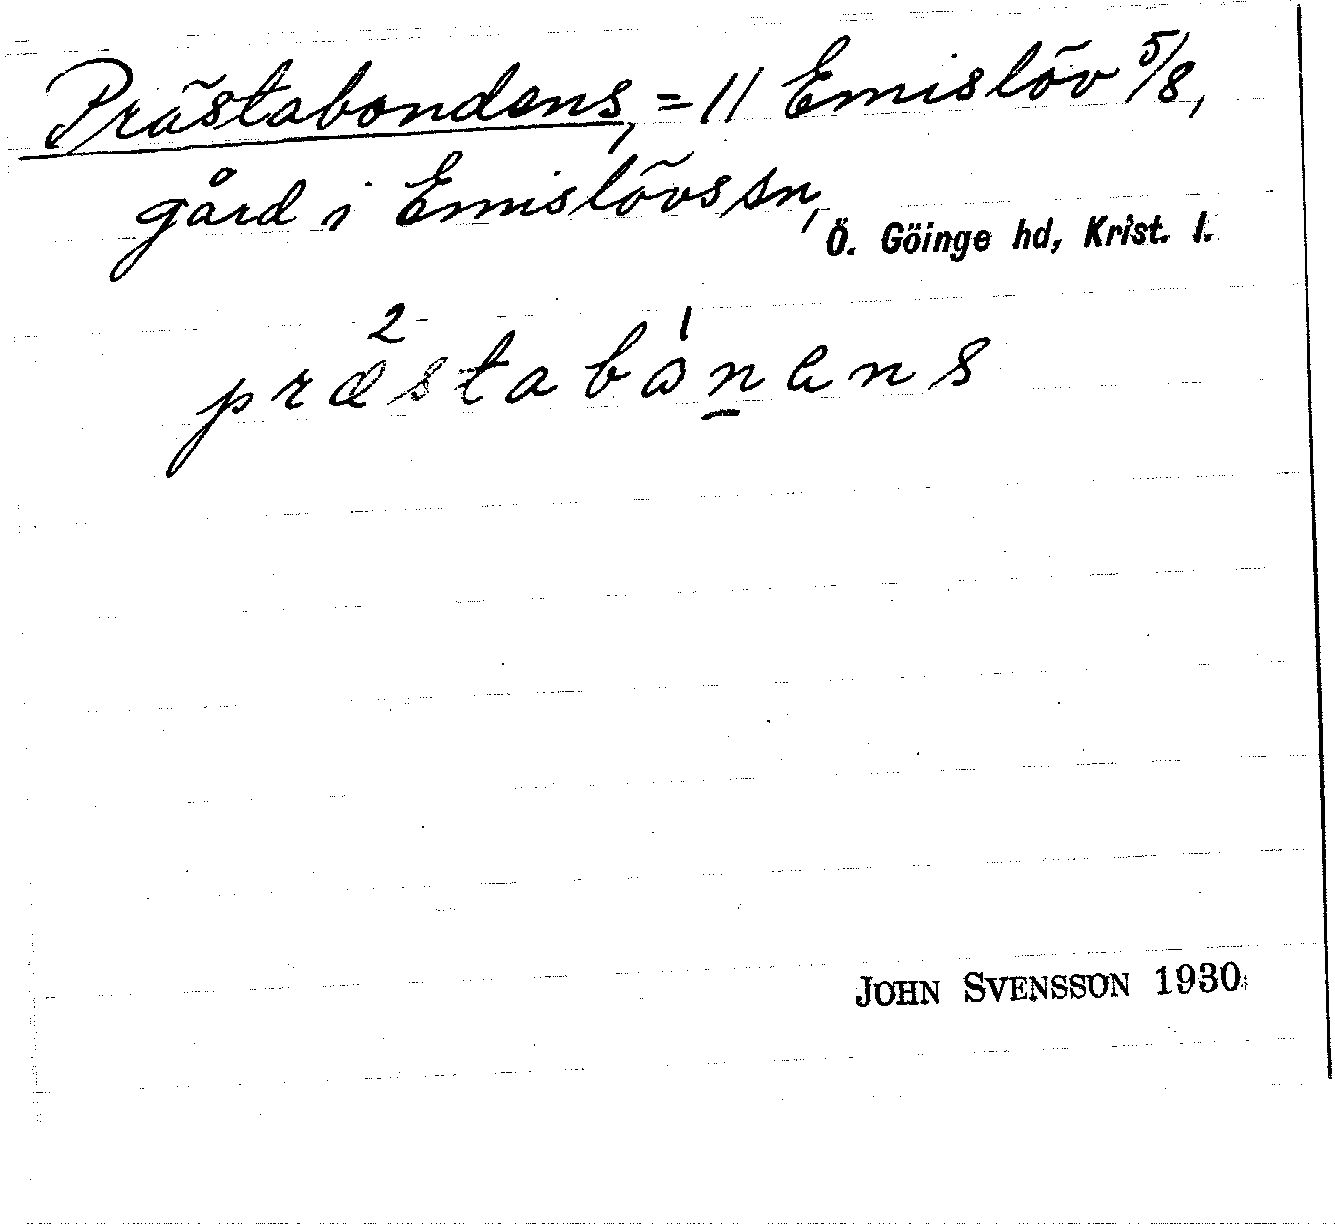 Prästabondens, = 11 Emislöv 5/8,
gård i Emislövs sn,
Ö. Göinge hd, Krist. l.
præ²stabó¹n̲ens
JOHN SVENSSON 1930